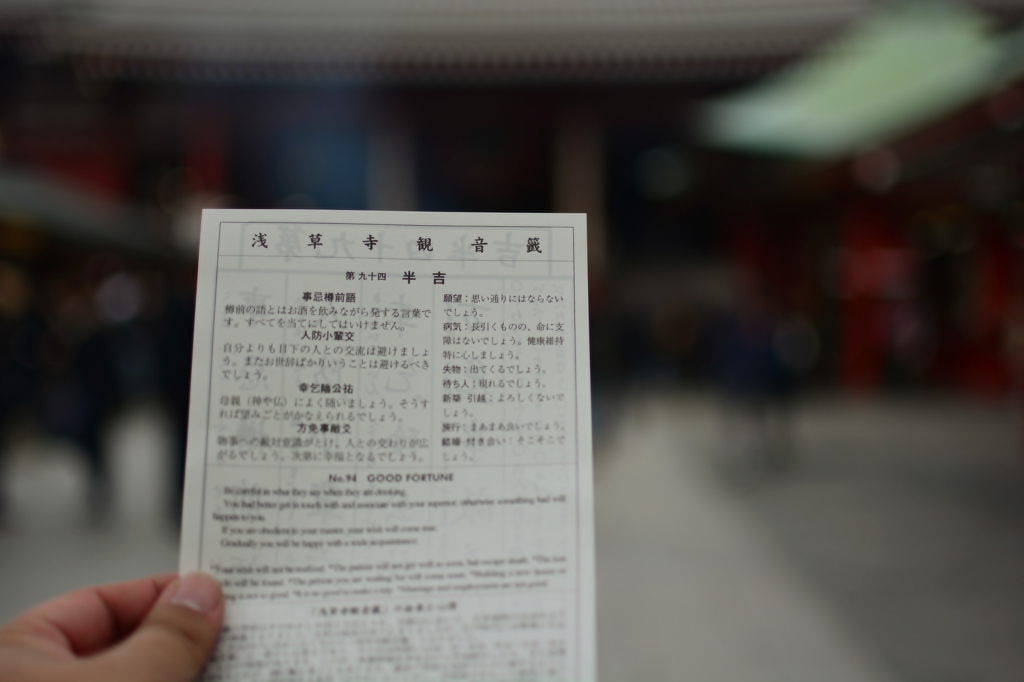 浅草寺観音籤
第九十四 半吉
事忌樽前語
樽前の語とはお酒を飲みながら発する言葉で
す。すべてを当てにしてはいけません。
人防小輩交
自分よりも目下の人との交流は避けましょ
う。またお世辞ばかりいうことは避けるべき
でしょう。
幸乞陰公祐
母親（神や仏）によく随いましょう。そうす
れば望みごとがかなえられるでしょう。
方免事敵爻
物事への敵対意識がとけ、人との交わりが広
がるでしょう。次第に幸福となるでしょう。
願望：思い通りにはならない
でしょう。
病気：長引くものの、命に支
障はないでしょう。健康維持
特に心しましょう。
失物：出てくるでしょう。
待ち人：現れるでしょう。
新築・引越：よろしくないで
しょう。
旅行：まあまあ良いでしょう。
結婚・付き合い：そこそこで
しょう。
No.94 GOOD FORTUNE
Be careful in what they say when they are drinking.
You had better get in touch with and associate with your superior, otherwise something bad will
happen to you.
If you are obedient to your master, your wish will come true.
Gradually you will be happy with a wide acquaintance.
*Your wish will not be realized. *The patient will not get well so soon, but escape death. *The lost
article will be found. *The person you are waiting for will come soon. *Building a new house or
is not so good. *It is so good to make a trip. *Marriage and employment are not good.